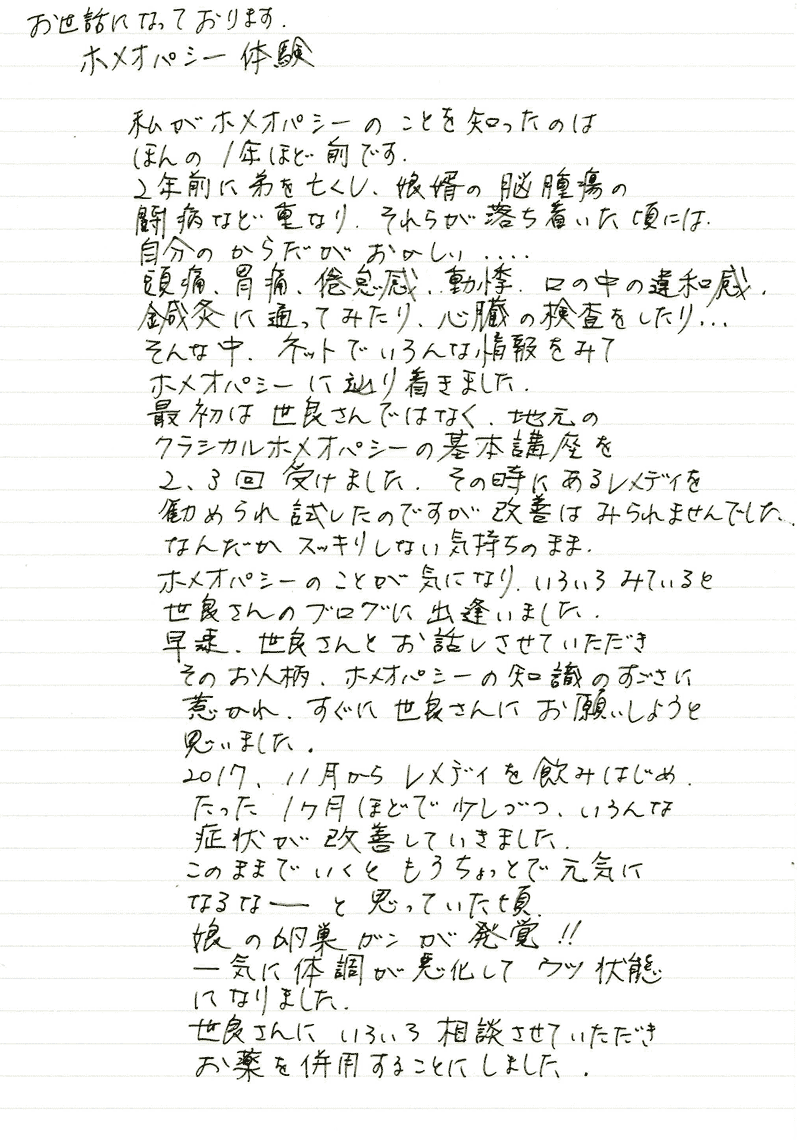 お世話になっております.
ホメオパシー体験
私がホメオパシーのことを知ったのは
ほんの1年ほど前です.
2年前に弟を亡くし、娘婿の脳腫瘍の
闘病など重なり、それらが落ち着いた頃には
自分のからだがおかしい....
頭痛、胃痛、倦怠感、動悸、口の中の違和感、
鍼灸に通ってみたり、心臓の検査をしたり...
そんな中、ネットでいろんな情報をみて
ホメオパシーに辿り着きました.
最初は世良さんではなく、地元の
クラシカルホメオパシーの基本講座を
2、3回受けました. その時にあるレメディを
勧められ試したのですが改善はみられませんでした、
なんだかスッキリしない気持ちのまま.
ホメオパシーのことが気になり、いろいろみていると
世良さんのブログに出逢いました.
早速、世良さんとお話しさせていただき
そのお人柄、ホメオパシーの知識のすごさに
惹かれ、すぐに世良さんにお願いしようと
思いました.
2017、11月からレメディを飲みはじめ、
たった1ヶ月ほどで少しづつ、いろんな
症状が改善していきました.
このままでいくともうちょっとで元気に
なるなーと思っていた頃、
娘の卵巣ガンが発覚!!
一気に体調が悪化してウツ状態
になりました.
世良さんにいろいろ相談させていただき
お薬を併用することにしました.